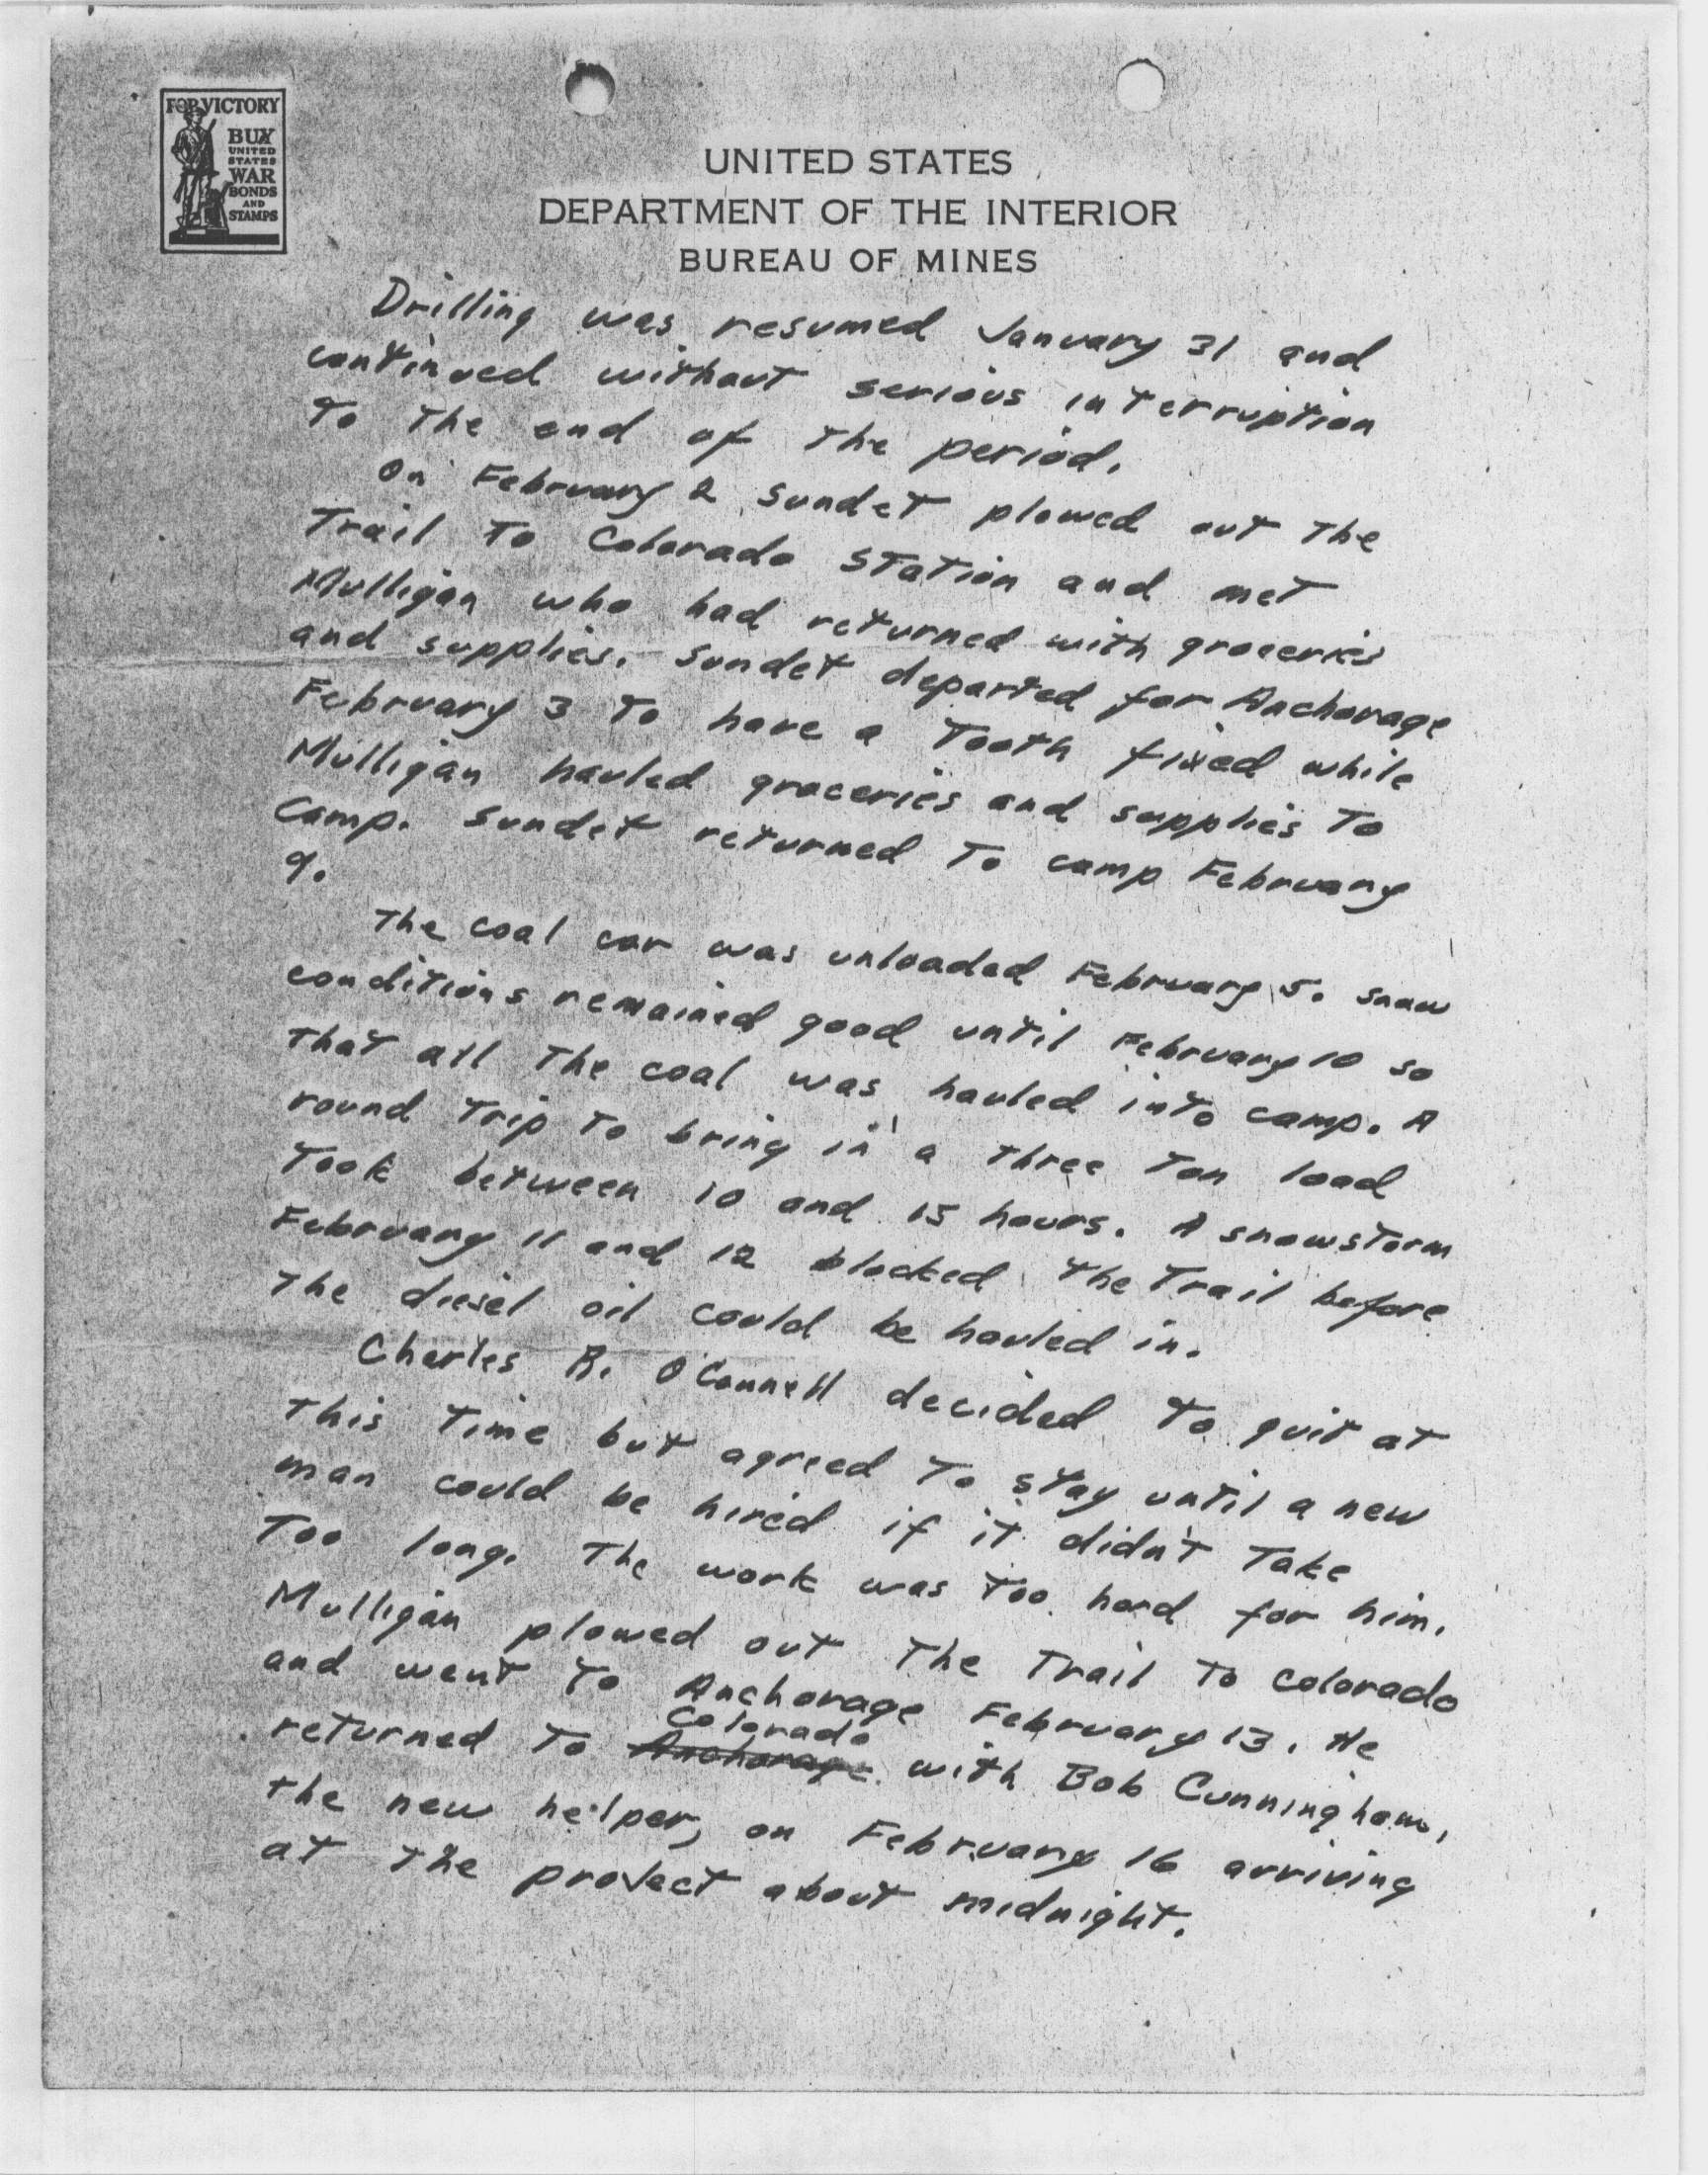 FOR VICTORY
BUY
UNITED
STATES
WAR
BONDS
AND
STAMPS
UNITED STATES
DEPARTMENT OF THE INTERIOR
BUREAU OF MINES
Drilling was resumed January 31 and
continued without serious interruption
to the end of the period.
On February 2 Sundet plowed out the
Trail to Colorado Station and met
Mulligan who had returned with groceries
and supplies. Sundet departed for Anchorage
February 3 to have a tooth fixed while
Mulligan hauled groceries and supplies to
camp. Sundet returned to camp February
9.
The coal car was unloaded February 5. Snow
conditions remained good until February 10 so
that all the coal was hauled into camp. A
round trip to bring in a three ton load
took between 10 and 15 hours. A snowstorm
February 11 and 12 blocked the trail before
the diesel oil could be hauled in.
Charles R. O'Connell decided to quit at
this time but agreed to stay until a new
man could be hired if it didn't take
too long. The work was too hard for him.
Mulligan plowed out the trail to Colorado
and went to Anchorage February 13. He
Colorado
returned to Anchorage with Bob Cunningham,
the new helper, on February 16 arriving
at the project about midnight.